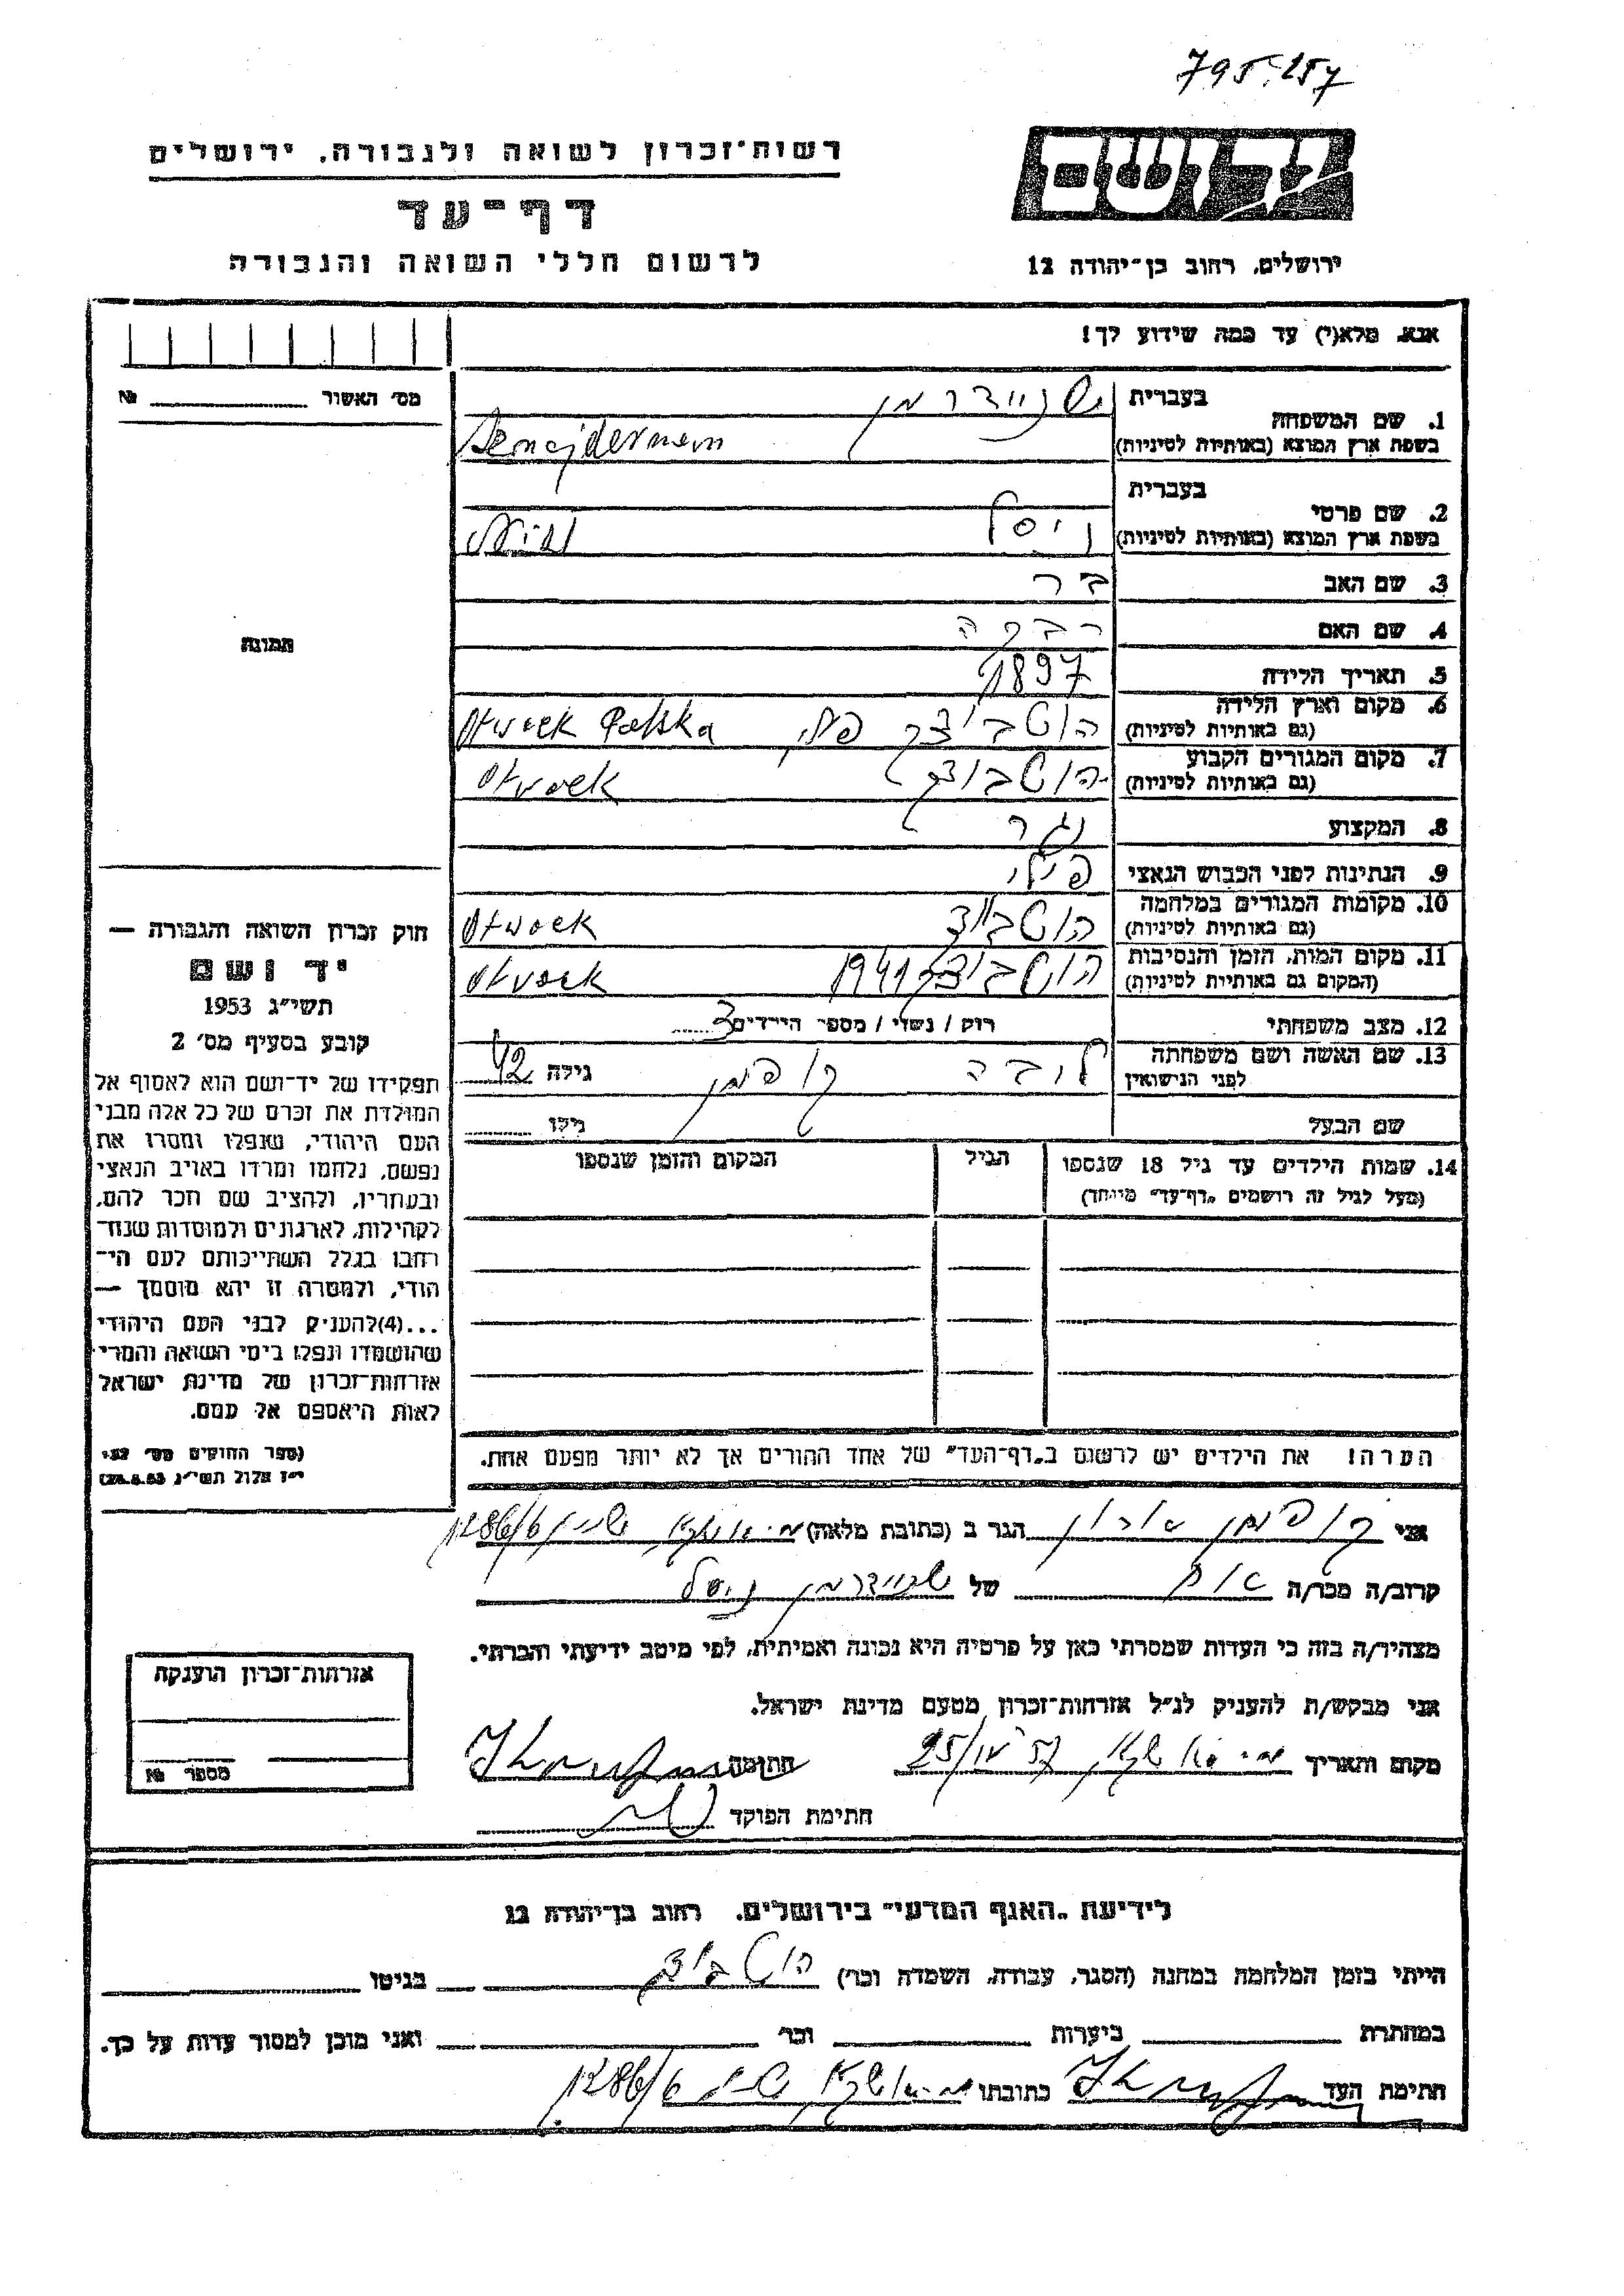 795.257
יד ושם
רשות־זכרון לשואה ולגבורה, ירושלים
דף־עד
לרשום חללי השואה והגבורה
ירושלים, רחוב בן־יהודה 12
אנא, מלא(י) עד כמה שידוע לך!
מס׳ האשור №
1. שם המשפחה
בעברית שניידרמן
בשפת ארץ המוצא (באותיות לטיניות)
2. שם פרטי
בעברית ניסל
בשפת ארץ המוצא (באותיות לטיניות)
3. שם האב בר
4. שם האם רבקה
5. תאריך הלידה 1897
6. מקום וארץ הלידה
(גם באותיות לטיניות) Otwock Polska
7. מקום המגורים הקבוע
(גם באותיות לטיניות) Otwock
8. המקצוע נגר
9. הנתינות לפני הכבוש הנאצי
10. מקומות המגורים במלחמה
(גם באותיות לטיניות) Otwock
11. מקום המות, הזמן והנסיבות
(המקום גם באותיות לטיניות) 1941 Otwock
12. מצב משפחתי רוק / נשוי / מספר הילדים 3
13. שם האשה ושם משפחתה
לפני הנישואין ליבה קופמן גילה 42
שם הבעל גילו
14. שמות הילדים עד גיל 18 שנספו
(מעל לגיל זה רושמים „דף־עד״ מיוחד)
הגיל
המקום והזמן שנספו
תמונה
חוק זכרון השואה והגבורה —
יד ושם
תשי״ג 1953
קובע בסעיף מס׳ 2
תפקידו של יד־ושם הוא לאסוף אל
המולדת את זכרם של כל אלה מבני
העם היהודי, שנפלו ומסרו את
נפשם, נלחמו ומרדו באויב הנאצי
ובעוזריו, ולהציב שם וזכר להם,
לקהילות, לארגונים ולמוסדות שנח־
רבו בגלל השתייכותם לעם הי־
הודי, ולמטרה זו יהא מוסמך —
...(4)להעניק לבני העם היהודי
שהושמדו ונפלו בימי השואה והמרי
אזרחות־זכרון של מדינת ישראל
לאות היאספם אל עמם.
(ספר החוקים מס׳ 132,
י״ז אלול תשי״ג 28.8.53)
הערה! את הילדים יש לרשום ב„דף־העד״ של אחד ההורים אך לא יותר מפעם אחת.
אני קופמן אהרון הגר ב (כתובת מלאה)
קרוב/ה מכר/ה של שניידרמן ניסל
מצהיר/ה בזה כי העדות שמסרתי כאן על פרטיה היא נכונה ואמיתית, לפי מיטב ידיעתי והכרתי.
אני מבקש/ת להעניק לנ״ל אזרחות־זכרון מטעם מדינת ישראל.
מקום ותאריך חתימה
חתימת הפוקד
אזרחות־זכרון הוענקה
מספר №
לידיעת „האגף המדעי״ בירושלים, רחוב בן־יהודה 12
הייתי בזמן המלחמה במחנה (הסגר, עבודה, השמדה וכו׳) בגיטו
במחתרת ביערות וכו׳ ואני מוכן למסור עדות על כך.
חתימת העד כתובתו